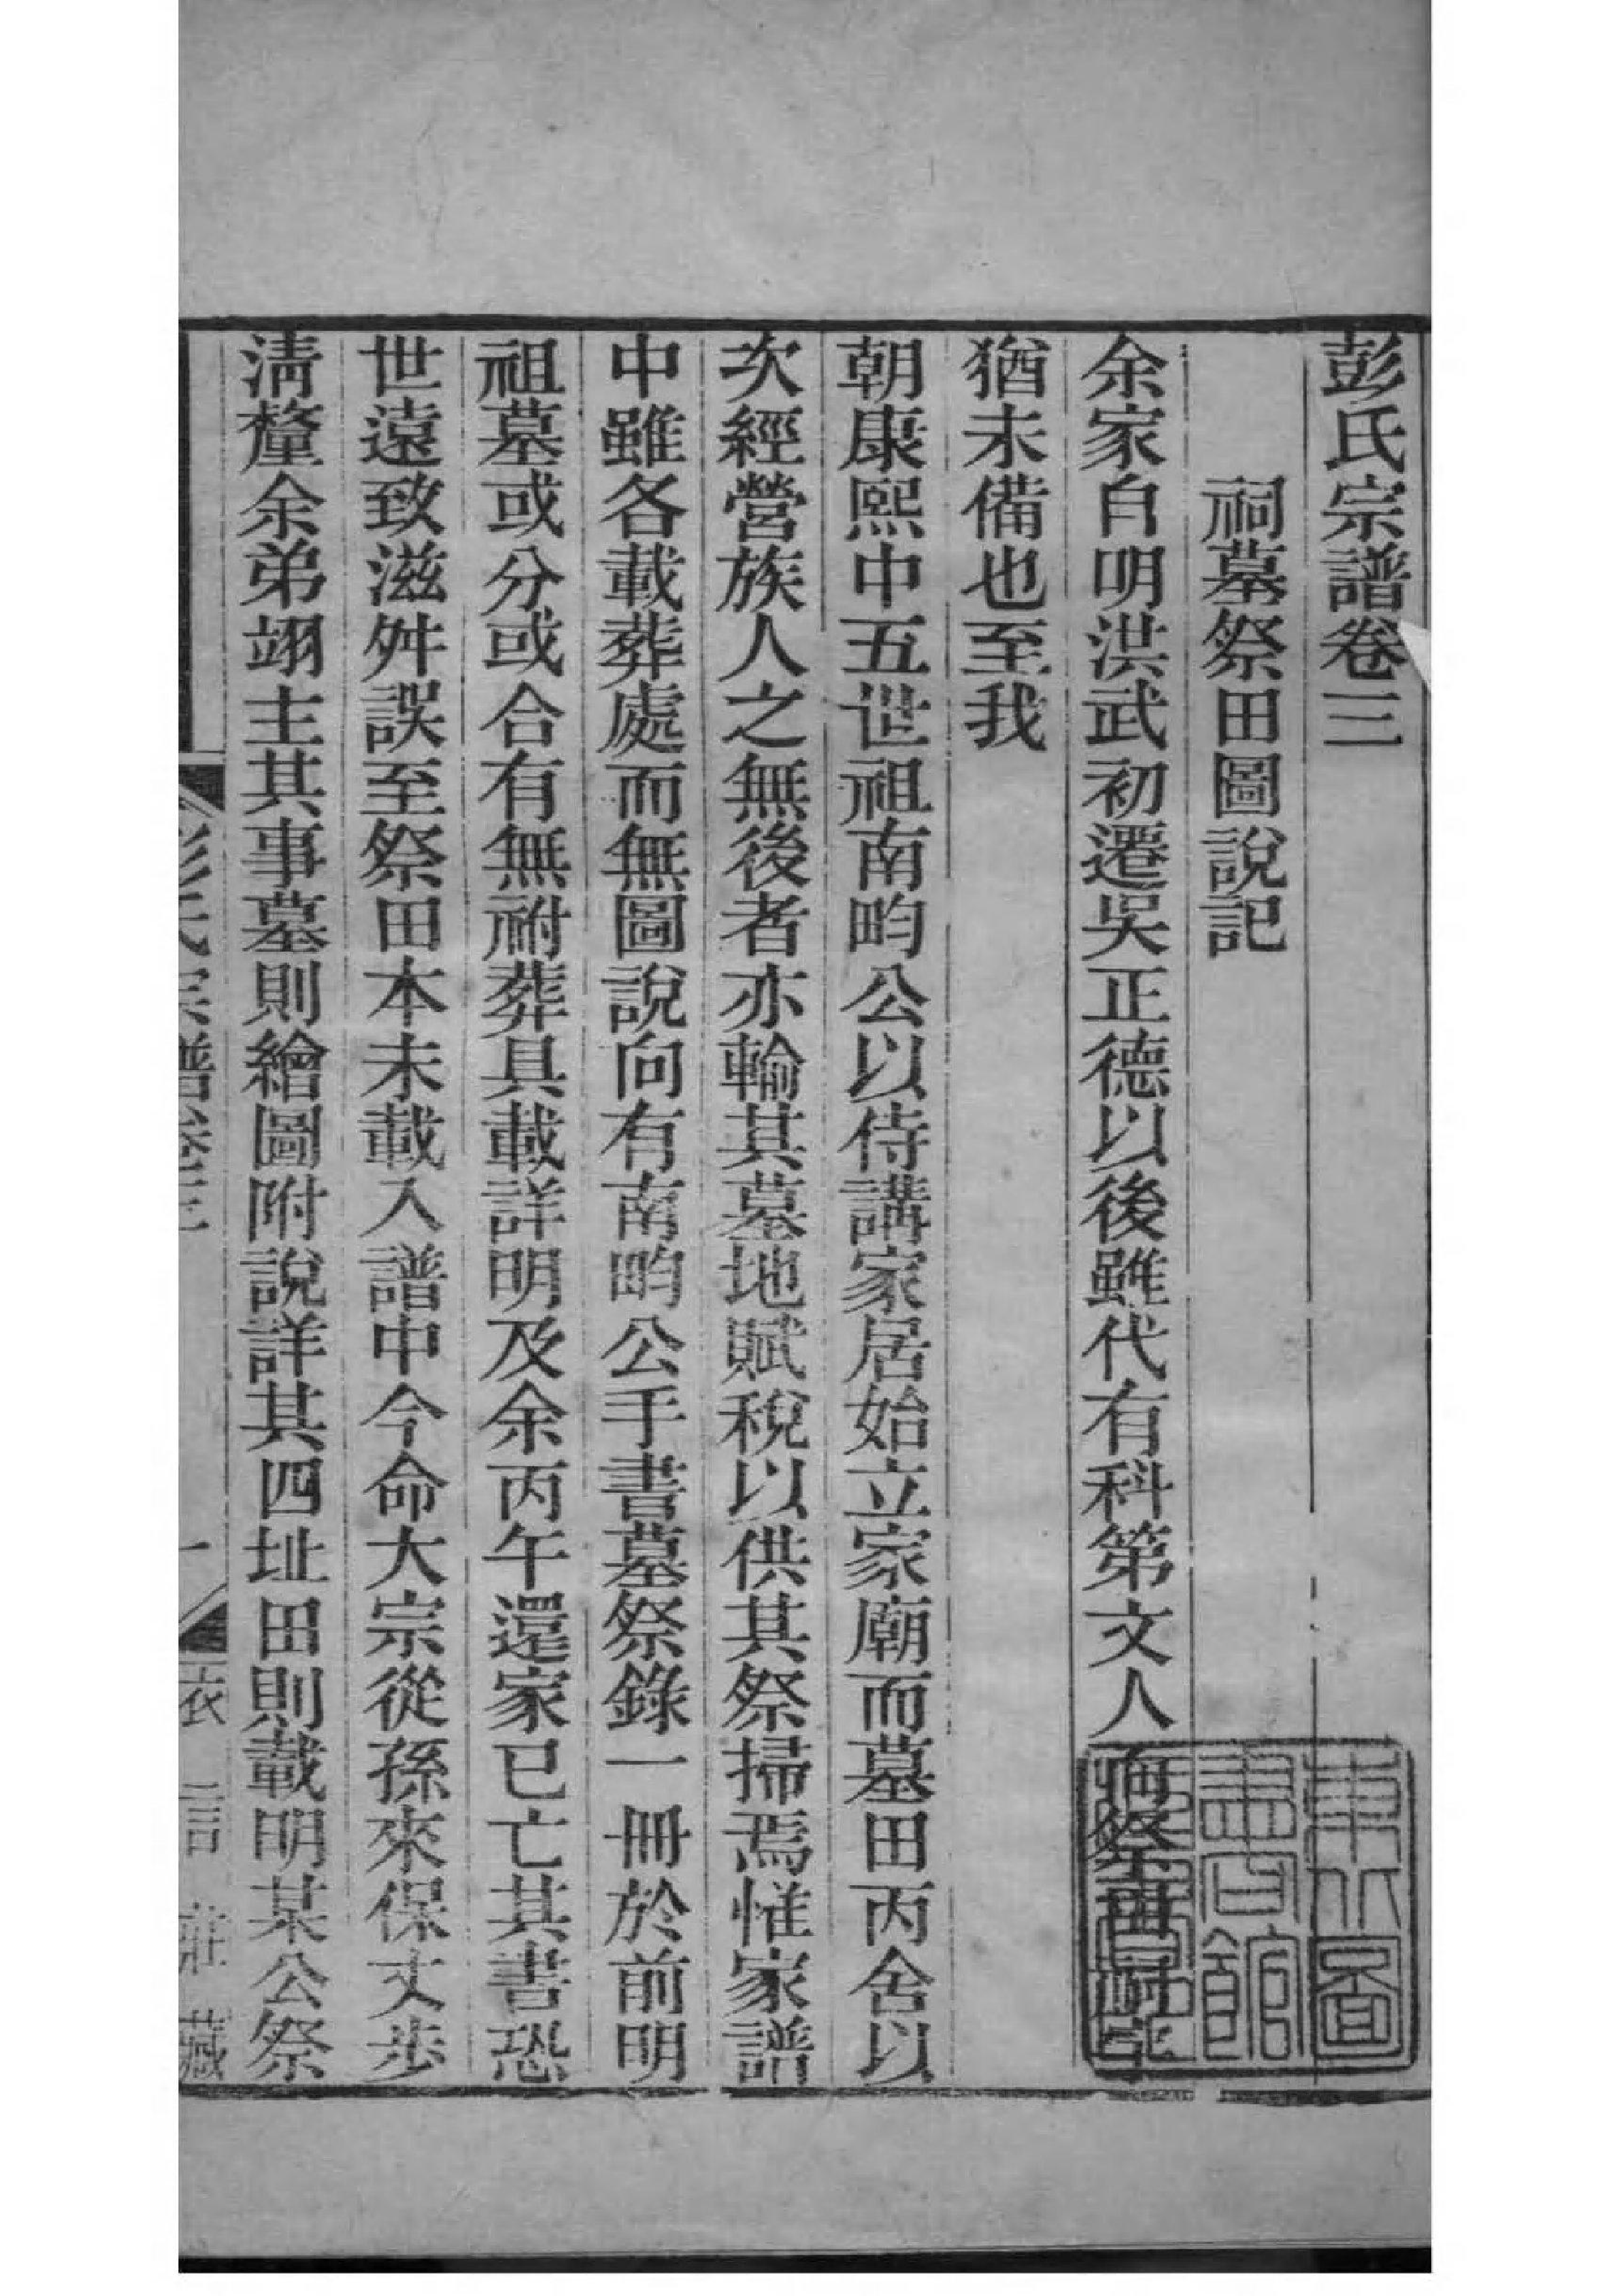 彭氏宗譜卷三
祠墓祭田圖說記
余家自明洪武初遷吳正德以後雖代有科第文人而祭田祠宇
猶未備也至我
朝康熙中五世祖南畇公以侍講家居始立家廟而墓田丙舍以
次經營族人之無後者亦輪其墓地賦稅以供其祭掃焉惟家譜
中雖各載葬處而無圖說向有南畇公手書墓祭錄一冊於前明
祖墓或分或合有無祔葬具載詳明及余丙午還家已亡其書恐
世遠致滋舛誤至祭田本未載入譜中今命大宗從孫來保丈步
淸釐余弟翊主其事墓則繪圖附說詳其四址田則載明某公祭
彭氏宗譜卷三
一
衣言莊藏
東方圖
書館